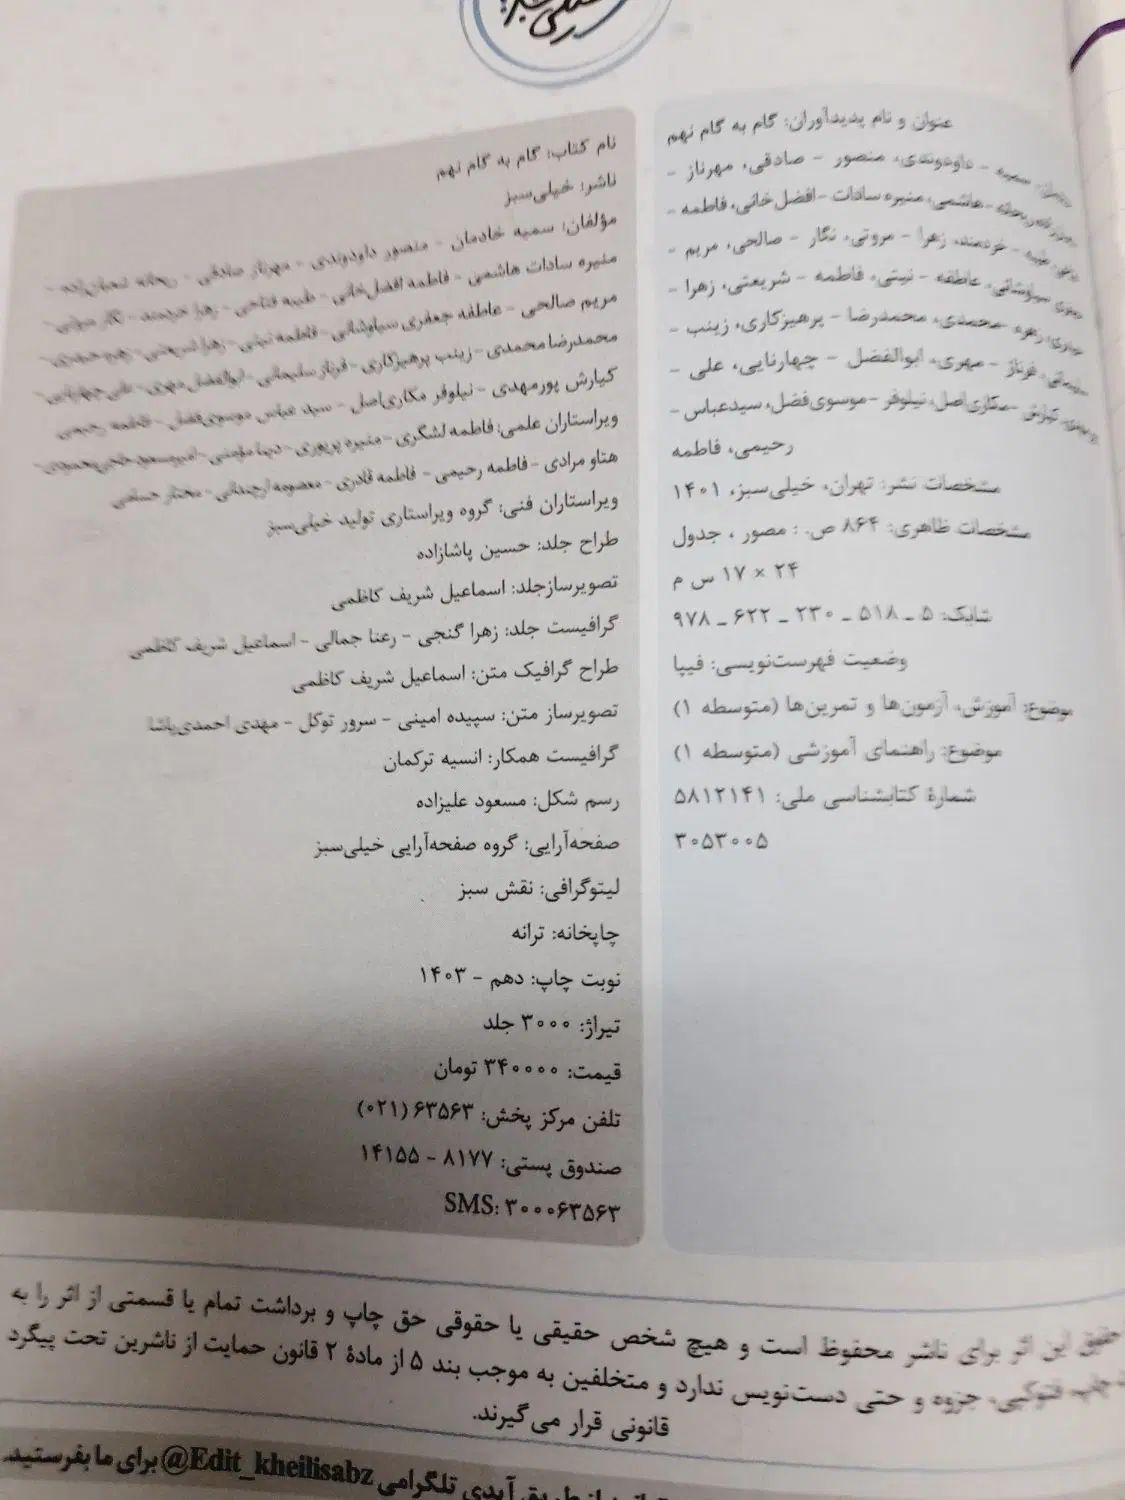 عنوان و نام پدیدآوران: گام به گام نهم
سمیه - داودوندی، منصور - صادقی، مهرناز -
هاشمی، منیره سادات - افضل‌خانی، فاطمه -
خردمند، زهرا - مروتی، نگار - صالحی، مریم -
عاطفه - نیتی، فاطمه - شریعتی، زهرا -
محمدی، محمدرضا - پرهیزکاری، زینب -
مهری، ابوالفضل - چهارنایی، علی -
مکاری‌اصل، نیلوفر - موسوی‌فضل، سیدعباس -
رحیمی، فاطمه
مشخصات نشر: تهران، خیلی‌سبز، ۱۴۰۱
مشخصات ظاهری: ۸۶۴ ص. : مصور ، جدول
۲۴ × ۱۷ س م
شابک: ۵ ـ ۵۱۸ ـ ۲۳۰ ـ ۶۲۲ ـ ۹۷۸
وضعیت فهرست‌نویسی: فیپا
موضوع: آموزش، آزمون‌ها و تمرین‌ها (متوسطه ۱)
موضوع: راهنمای آموزشی (متوسطه ۱)
شمارهٔ کتابشناسی ملی: ۵۸۱۲۱۴۱
۳۰۵۳۰۰۵
نام کتاب: گام به گام نهم
ناشر: خیلی‌سبز
مؤلفان: سمیه خادمان - منصور داودوندی - مهرناز صادقی - ریحانه
منیره سادات هاشمی - فاطمه افضل‌خانی - طیبه فتاحی - زهرا خردمند - نگار مروتی -
مریم صالحی - عاطفه جعفری سیاوشانی - فاطمه نیتی - زهرا شریعتی -
محمدرضا محمدی - زینب پرهیزکاری - فرناز سلیمانی - ابوالفضل مهری - علی چهارنایی -
کیارش پورمهدی - نیلوفر مکاری‌اصل - سید عباس موسوی‌فضل - فاطمه رحیمی
ویراستاران علمی: فاطمه لشگری - منیره پرپوری -
هتاو مرادی - فاطمه رحیمی - فاطمه قادری - معصومه
ویراستاران فنی: گروه ویراستاری تولید خیلی‌سبز
طراح جلد: حسین پاشازاده
تصویرسازجلد: اسماعیل شریف کاظمی
گرافیست جلد: زهرا گنجی - رعنا جمالی - اسماعیل شریف کاظمی
طراح گرافیک متن: اسماعیل شریف کاظمی
تصویرساز متن: سپیده امینی - سرور توکل - مهدی احمدی‌پاشا
گرافیست همکار: انسیه ترکمان
رسم شکل: مسعود علیزاده
صفحه‌آرایی: گروه صفحه‌آرایی خیلی‌سبز
لیتوگرافی: نقش سبز
چاپخانه: ترانه
نوبت چاپ: دهم - ۱۴۰۳
تیراژ: ۳۰۰۰ جلد
قیمت: ۳۴۰۰۰۰ تومان
تلفن مرکز پخش: ۶۳۵۶۳ (۰۲۱)
صندوق پستی: ۸۱۷۷ - ۱۴۱۵۵
SMS: ۳۰۰۰۶۳۵۶۳
این اثر برای ناشر محفوظ است و هیچ شخص حقیقی یا حقوقی حق چاپ و برداشت تمام یا قسمتی از اثر را به
چاپ، فتوکپی، جزوه و حتی دست‌نویس ندارد و متخلفین به موجب بند ۵ از مادهٔ ۲ قانون حمایت از ناشرین تحت پیگرد
قانونی قرار می‌گیرند.
از طریق آیدی تلگرامی @Edit_kheilisabz برای ما بفرستید.